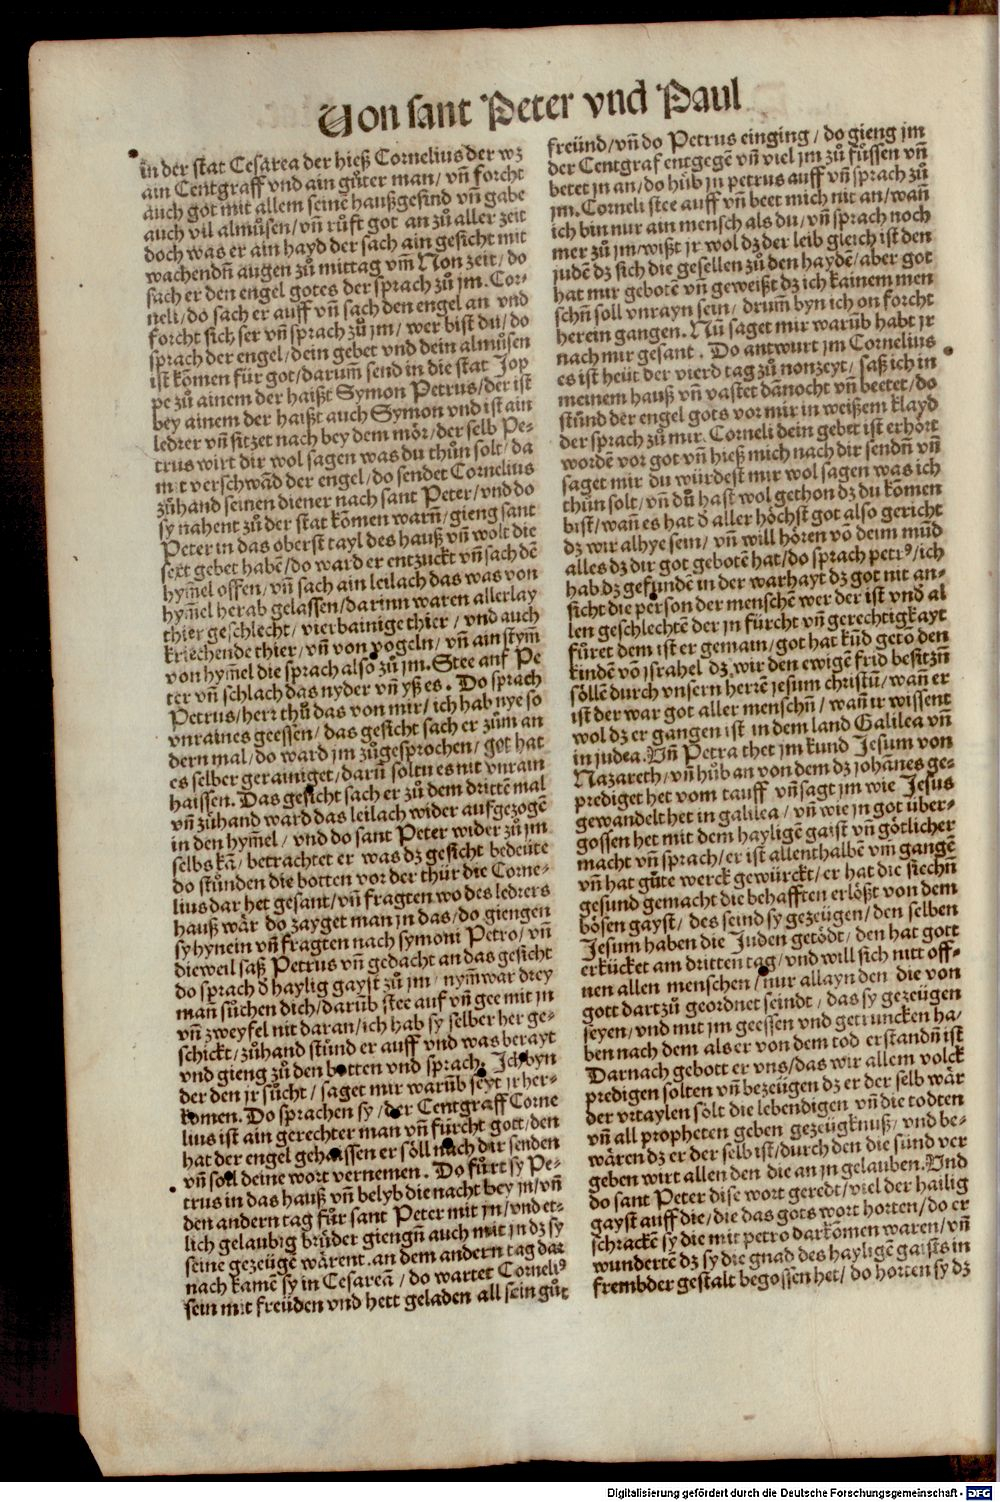 Von sant Peter vnd Paul
in der stat Cesarea der hieß Cornelius der wz
ain Centgraff vnd ain gůter man/ vñ forcht
auch got mit allem seinē haußgesind vñ gabe
auch vil almůsen/vñ růfft got an zů aller zeit
doch was er ain hayd der sach ain gesicht mit
wachendñ augen zů mittag vm̃ Non zeit/ do
sach er den engel gotes der sprach zů jm. Cor-
neli/do sach er auff vñ sach den engel an vnd
forcht sich ser vñ sprach zů jm/ wer bist du/ do
sprach der engel/dein gebet vnd dein almůsen
ist kōmen für got/darum̃ send in die stat Jop
pe zů ainem der haißt Symon Petrus/der ist
bey ainem der haißt auch Symon vnd ist ain
ledrer vñ sitzet nach bey dem mör/der selb Pe-
trus wirt dir wol sagen was du thůn solt/ da
mit verschwād der engel/do sendet Cornelius
zůhand seinen diener nach sant Peter/vnd do
sy nahent zů der stat kōmen warñ/gieng sant
Peter in das oberst tayl des hauß vñ wolt die
sext gebet habē/do ward er entzuckt vñ sach dē
hym̃el offen/vñ sach ain leilach das was von
hym̃el herab gelassen/darinn waren allerlay
thier geschlecht/ vierbainige thier/ vnd auch
kriechende thier/vñ von vogeln/vñ ain stym̃
von hym̃el die sprach also zů jm. Stee auf Pe
ter vñ schlach das nyder vñ yß es. Do sprach
Petrus/herr thů das von mir/ich hab nye so
vnraines geessen/das gesicht sach er zům an
dern mal/do ward jm zůgesprochen/got hat
es selber gerainiget/darū soltu es nit vnrain
haissen. Das gesicht sach er zů dem drittē mal
vñ zůhand ward das leilach wider aufgezogē
in den hym̃el/ vnd do sant Peter wider zů jm
selbs kā/ betrachtet er was dz gesicht bedeüte
do stůnden die botten vor der thür die Corne-
lius dar het gesant/vñ fragten wo des ledrers
hauß wär do zayget man jn das/do giengen
sy hynein vñ fragten nach symoni Petro/ vñ
dieweil saß Petrus vñ gedacht an das gesicht
do sprach d̄ haylig gayst zů jm/ nym̃war drey
man sůchen dich/darūb stee auf vñ gee mit jn
vñ zweyfel nit daran/ich hab sy selber her ge-
schickt/zůhand stůnd er auff vnd was berayt
vnd gieng zů den botten vnd sprach. Ich byn
der den jr sůcht/ saget mir warūb seyt jr her-
komen. Do sprachen sy/der Centgraff Corne
lius ist ain gerechter man vñ fürcht gott/den
hat der engel gehaissen er söll nach dir senden
vñ soll deine wort vernemen. Do fürt sy Pe-
trus in das hauß vñ belyb die nacht bey jn/vñ
den andern tag fůr sant Peter mit jn/vnd et-
lich gelaubig brüder giengñ auch mit jn dz sy
seine gezeügē wärent. an dem andern tag dar
nach kamē sy in Cesareā/ do wartet Corneliꝰ
sein mit freüden vnd hett geladen all sein gůt
freünd/vñ do Petrus einging/ do gieng jm
der Centgraf entgegē vñ viel jm zů fůssen vñ
betet jn an/do hůb jn petrus auff vñ sprach zů
jm. Corneli stee auff vñ beet mich nit an/wañ
ich bin nur ain mensch als du/vñ sprach noch
mer zů jm/wißt jr wol dz der leib gleich ist den
judē dz sich die gesellen zů den haydē/aber got
hat mir gebotē vñ geweißt dz ich kainem men
schñ soll vnrayn sein/ drum̃ byn ich on forcht
herein gangen. Nū saget mir warūb habt jr
nach mir gesant. Do antwurt jm Cornelius
es ist heüt der vierd tag zů nonzeyt/ saß ich in
meinem hauß vñ vastet dānocht vñ beetet/do
stůnd der engel gots vor mir in weißem klayd
der sprach zů mir. Corneli dein gebet ist erhört
wordē vor got vñ hieß mich nach dir sendñ vñ
saget mir du würdest mir wol sagen was ich
thůn solt/vñ dů hast wol gethon dz du kōmen
bist/wañ es hat d̄ aller höchst got also gericht
dz wir alhye sein/ vñ will hören vō deim mūd
alles dz dir got gebotē hat/do sprach petrꝰ/ich
hab dz gefunden in der warhayt dz got nit an-
sicht die person der menschē wer der ist vnd al
len geschlechtē der jn fürcht vñ gerechtigkayt
füret dem ist er gemain/got hat kūd geto den
kindē vō jsrahel dz wir den ewigē frid besitzñ
söllē durch vnsern herrē jesum christū/wañ er
ist der war got aller menschñ/ wañ ir wissent
wol dz er gangen ist in dem land Galilea vñ
in judea. Vñ Petra thet jm kund Jesum von
Nazareth/vñ hůb an von dem dz johānes ge-
prediget het vom tauff vñ sagt jm wie Jesus
gewandelt het in galilea/ vñ wie jn got über-
gossen het mit dem hayligē gaist vñ götlicher
macht vñ sprach/er ist allenthalbē vm̃ gangē
vñ hat gůte werck gewürckt/er hat die siechñ
gesund gemacht die behafften erlößt von dem
bösen gayst/ des seind sy gezeügen/den selben
Jesum haben die Juden getödt/ den hat gott
erkücket am dritten tag/vnd will sich nitt off-
nen allen menschen/nur allayn den die von
gott dartzů geordnet seindt/ das sy gezeügen
seyen/vnd mit jm geessen vnd getruncken ha-
ben nach dem als er von dem tod erstandñ ist
Darnach gebott er vns/das wir allem volck
predigen solten vñ bezeügen dz er der selb wär
der vrtaylen sölt die lebendigen vñ die todten
vñ all propheten geben gezeügknuß/ vnd be-
wären dz er der selb ist/durch den die sünd ver
geben wirt allen den die an jn gelauben. Vnd
do sant Peter dise wort geredt/viel der hailig
gayst auff die/die das gots wort horten/do er
schrackē sy die mit petro darkōmen waren/vñ
wundertē dz sy die gnad des hayligē gaists in
frembder gestalt begossen het/ do horten sy dz
Digitalisierung gefördert durch die Deutsche Forschungsgemeinschaft - DFG